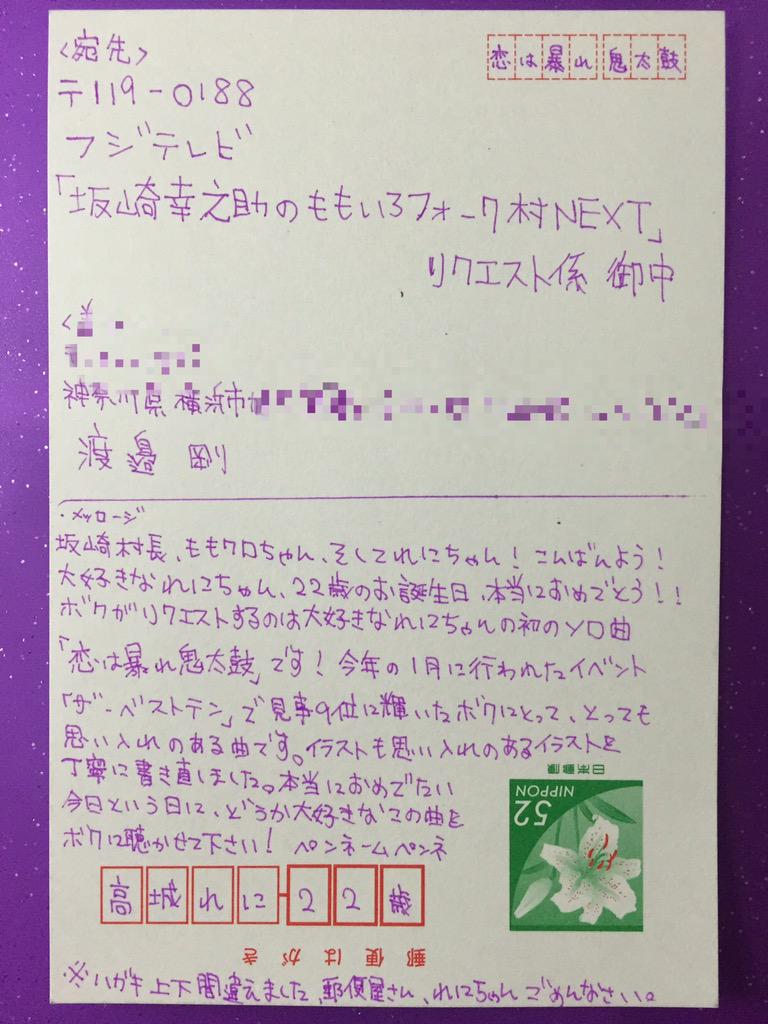 <宛先>
恋は暴れ鬼太鼓
〒119-0188
フジテレビ
「坂崎幸之助のももいろフォーク村NEXT」
リクエスト係 御中
神奈川県横浜市
渡邉 剛
・メッセージ
坂崎村長、ももクロちゃん、そしてれにちゃん！こんばんよう！
大好きなれにちゃん、22歳のお誕生日、本当におめでとう！！
ボクがリクエストするのは大好きなれにちゃんの初のソロ曲
「恋は暴れ鬼太鼓」です！今年の1月に行われたイベント
「ザ・ベストテン」で見事9位に輝いたボクにとって、とっても
思い入れのある曲です。イラストも思い入れのあるイラストを
丁寧に書き直しました。本当におめでたい
今日という日に、どうか大好きなこの曲を
ボクに聴かせて下さい！ ペンネームペンネ
日本郵便
NIPPON
52
高城れに-22歳
郵便はがき
※ハガキ上下間違えました、郵便屋さん、れにちゃんごめんなさい。